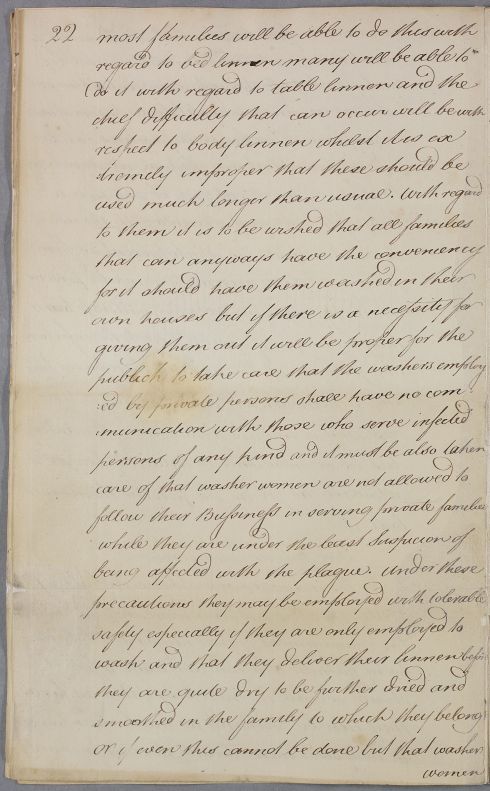 22 most families will be able to do this with
regard to bed linnen many will be able to
do it with regard to table linnen and the
chief difficulty that can occur will be with
respect to body linnen whilst it is ex
tremely improper that these should be
used much longer than usual. With regard
to them it is to be wished that all families
that can anyways have the conveniency
for it should have them washed in their
own houses but if there is a necessity for
giving them out it will be proper for the
publick to take care that the washers employ
:ed by private persons shall have no com:
:munication with those who serve infected
persons of any kind and it must be also taken
care of that washer women are not allowed to
follow their Bussiness in serving private families
while they are under the least Suspicion of
being affected with the plague. Under these
precautions they may be employed with tolerable
safety especially if they are only employed to
wash and that they deliver their linnen before
they are quite dry to be further dried and
smoothed in the family to which they belong
or if even this cannot be done but that washer
women